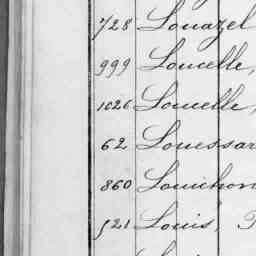 728 Louazel
999 Loucelle,
1026 Loucelle,
62 Louessar
860 Louichon
521 Louis,